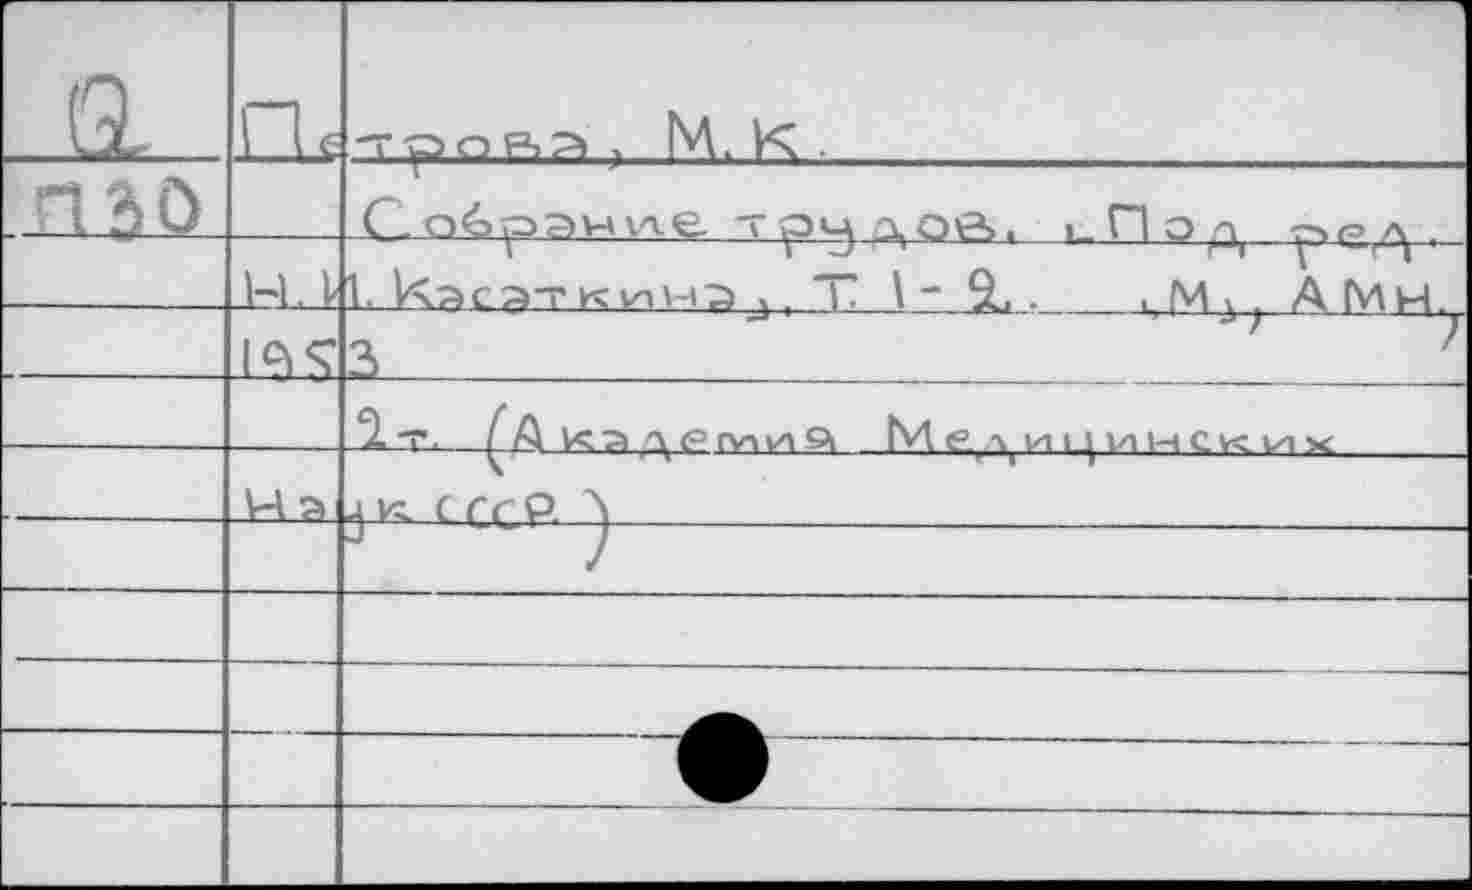 Q Петрова, М.К.
П30 Собрание трудов. Под ред.
Н.И. Касаткина. Т. 1-2. М., АМН,
1953
2 т. (Академия Медицинских
Наук СССР.)